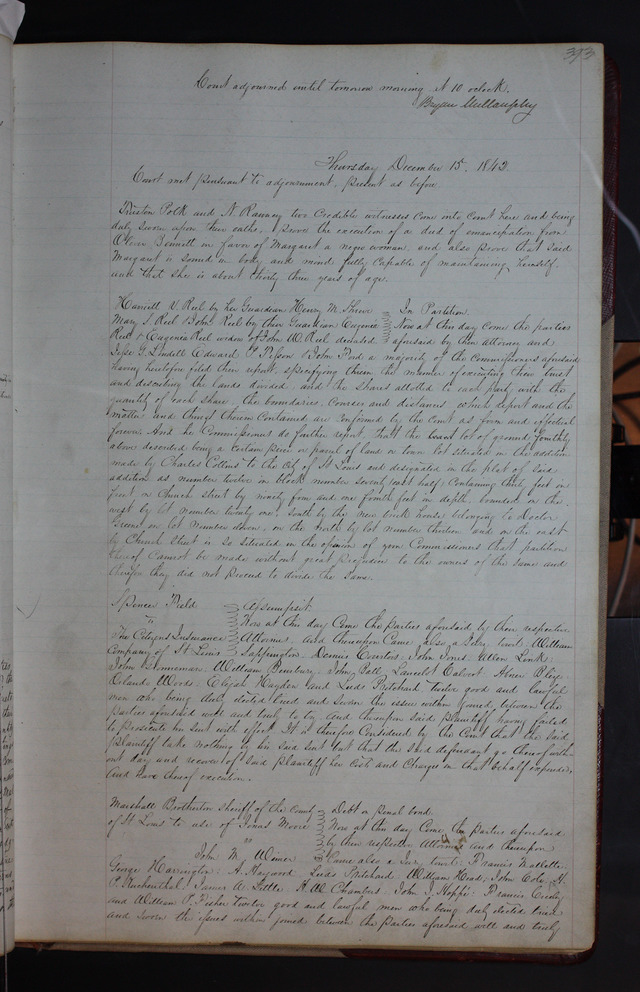 353
Court adjourned until tomorrow morning at 10 oclock.
Bryan Mullanphy
Thursday December 15, 1842.
Court met pursuant to adjournment, present as before
Trusten Polk and N. Ranney two Credible witnesses Come into Court here and being
duly sworn upon their oaths, prove the execution of a deed of emancipation from
Bennett in favor of Margaret a negro woman, and also prove that said
Margaret is sound in body and mind fully capable of maintaining himself
and that she is about thirty three years of age.
Harriett V. Reel by her Guardian Henry M. Shreve In Partition
Mary S. Reel & John Reel by their Guardian Eugenia Now at this day come the parties
Reel & Eugenia Reel widow of John W. Reel deceased aforesaid by their attorney and
Jesse G. Lindell Edward & John Ford a majority of the Commissioners aforesaid
having heretofore filed their report, specifying therein the manner of executing their trust
and describing the lands divided, and the shares allotted to each party with the
quantity of each share, the boundaries, Courses and distances, which report and the
matters and things therein Contained are Confirmed by the Court as firm and effectual
forever. And the Commissioners do further report, that the lot of ground fourthly
above described being a certain piece or parcel of land or town lot situated in the addition
made by Charles Collins to the City of St Louis and designated in the plat of said
addition as number twelve in block number seventy east half; Containing thirty feet in
front on Church street by ninety four and one fourth feet in depth. bounded on the
west by lot number twenty one, South by the new brick house belonging to Doctor
on lot number eleven, on the North by lot number thirteen and on the east
by Church Street is so situated in the opinion of your Commissioners that partition
thereof Cannot be made without great prejudice to the owners of the same and
therefore they did not proceed to divide the same.
Spencer Field Assumpsit
vs Now at this day Come the parties aforesaid by their respective
The Citizens Insurance Attornies and thereupon Came also a Jury towit: William
Company of St Louis Sappington. Dennis : John Jones. Allen Link:
John : William : John Ball Lancelot Calvert Abner
Orlando Woods: Elijah Hayden and Leeds Pritchard twelve good and lawful
men who being duly elected tried and sworn the issue within joined between the
parties aforesaid well and truly to try. And thereupon said plaintiff having failed
to prosecute his suit with effect It is therefore Considered by the Court that the said
plaintiff take nothing by his said suit but that the said defendant go thereof with-
out day and recover of said plaintiff her Costs and Charges in that behalf expended,
and have thereof execution.
Marshall Brotherton sheriff of the County Debt on penal bond.
of St Louis to use of Jonas Moore Now at this day Come the parties aforesaid
vs by their respective Attornies and thereupon
John M. Wimer Came also a Jury towit: Francis Nallette.
George Harrington: A. Haywood Leeds Pritchard William Head; John Cole; H.
P. : James A. Little. H. W. Chambers. John J. Hoppe: Francis
and William P. Fisher twelve good and lawful men who being duly elected tried
and sworn the issues within joined between the parties aforesaid well and truly